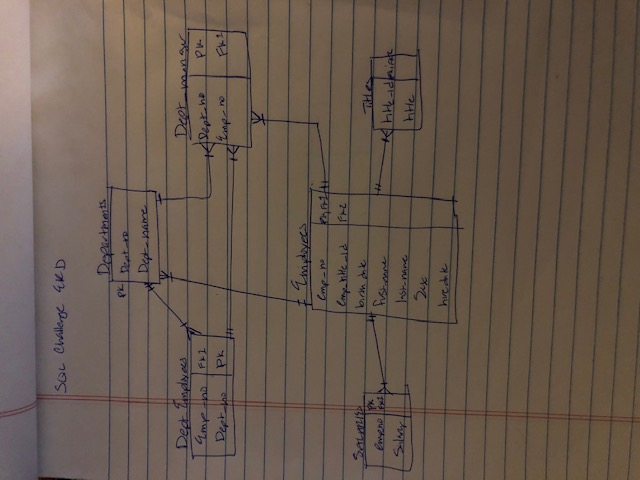 SQL Challenge ERD
Departments
PK Dept_no
Dept_name
Dept_Employees
Emp_no FK1
Dept_no PK
Dept_manager
Dept_no PK
Emp_no FK1
Employees
emp_no PK,FK1
emp_title_id FK2
birth_date
first_name
last_name
Sex
hire_date
SALARIES
PK
emp_no FK1
Salary
Titles
title_id
title